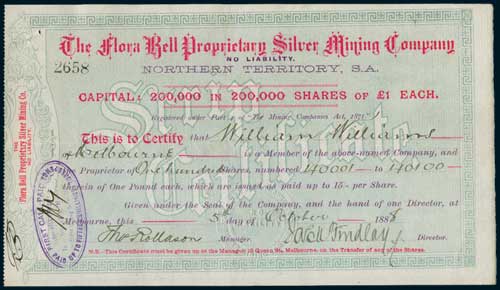 The Flora Bell Proprietary Silver Mining Company
NO LIABILITY.
2658
NORTHERN TERRITORY, S.A.
CAPITAL: 200,000 IN 200,000 SHARES OF £1 EACH.
Registered under Part of The Mining Companies Act, 1871
This is to Certify that William Williams
Melbourne is a Member of the above-named Company, and
the Proprietor of One hundred Shares, numbered 40001 to 40100
therein of One Pound each, which are issued as paid up to 15/- per Share.
Given under the Seal of the Company, and the hand of one Director, at
Melbourne, this 5 day of October 1888
Thos Rollason Manager. Findlay Director.
N.B.—This Certificate must be given up at the Manager's Queen St., Melbourne, on the Transfer of any of the Shares.
THE
Flora Bell Proprietary Silver Mining Co.
NO LIABILITY.
FIRST CALL PAID
PAID UP TO
Scrip Certificate